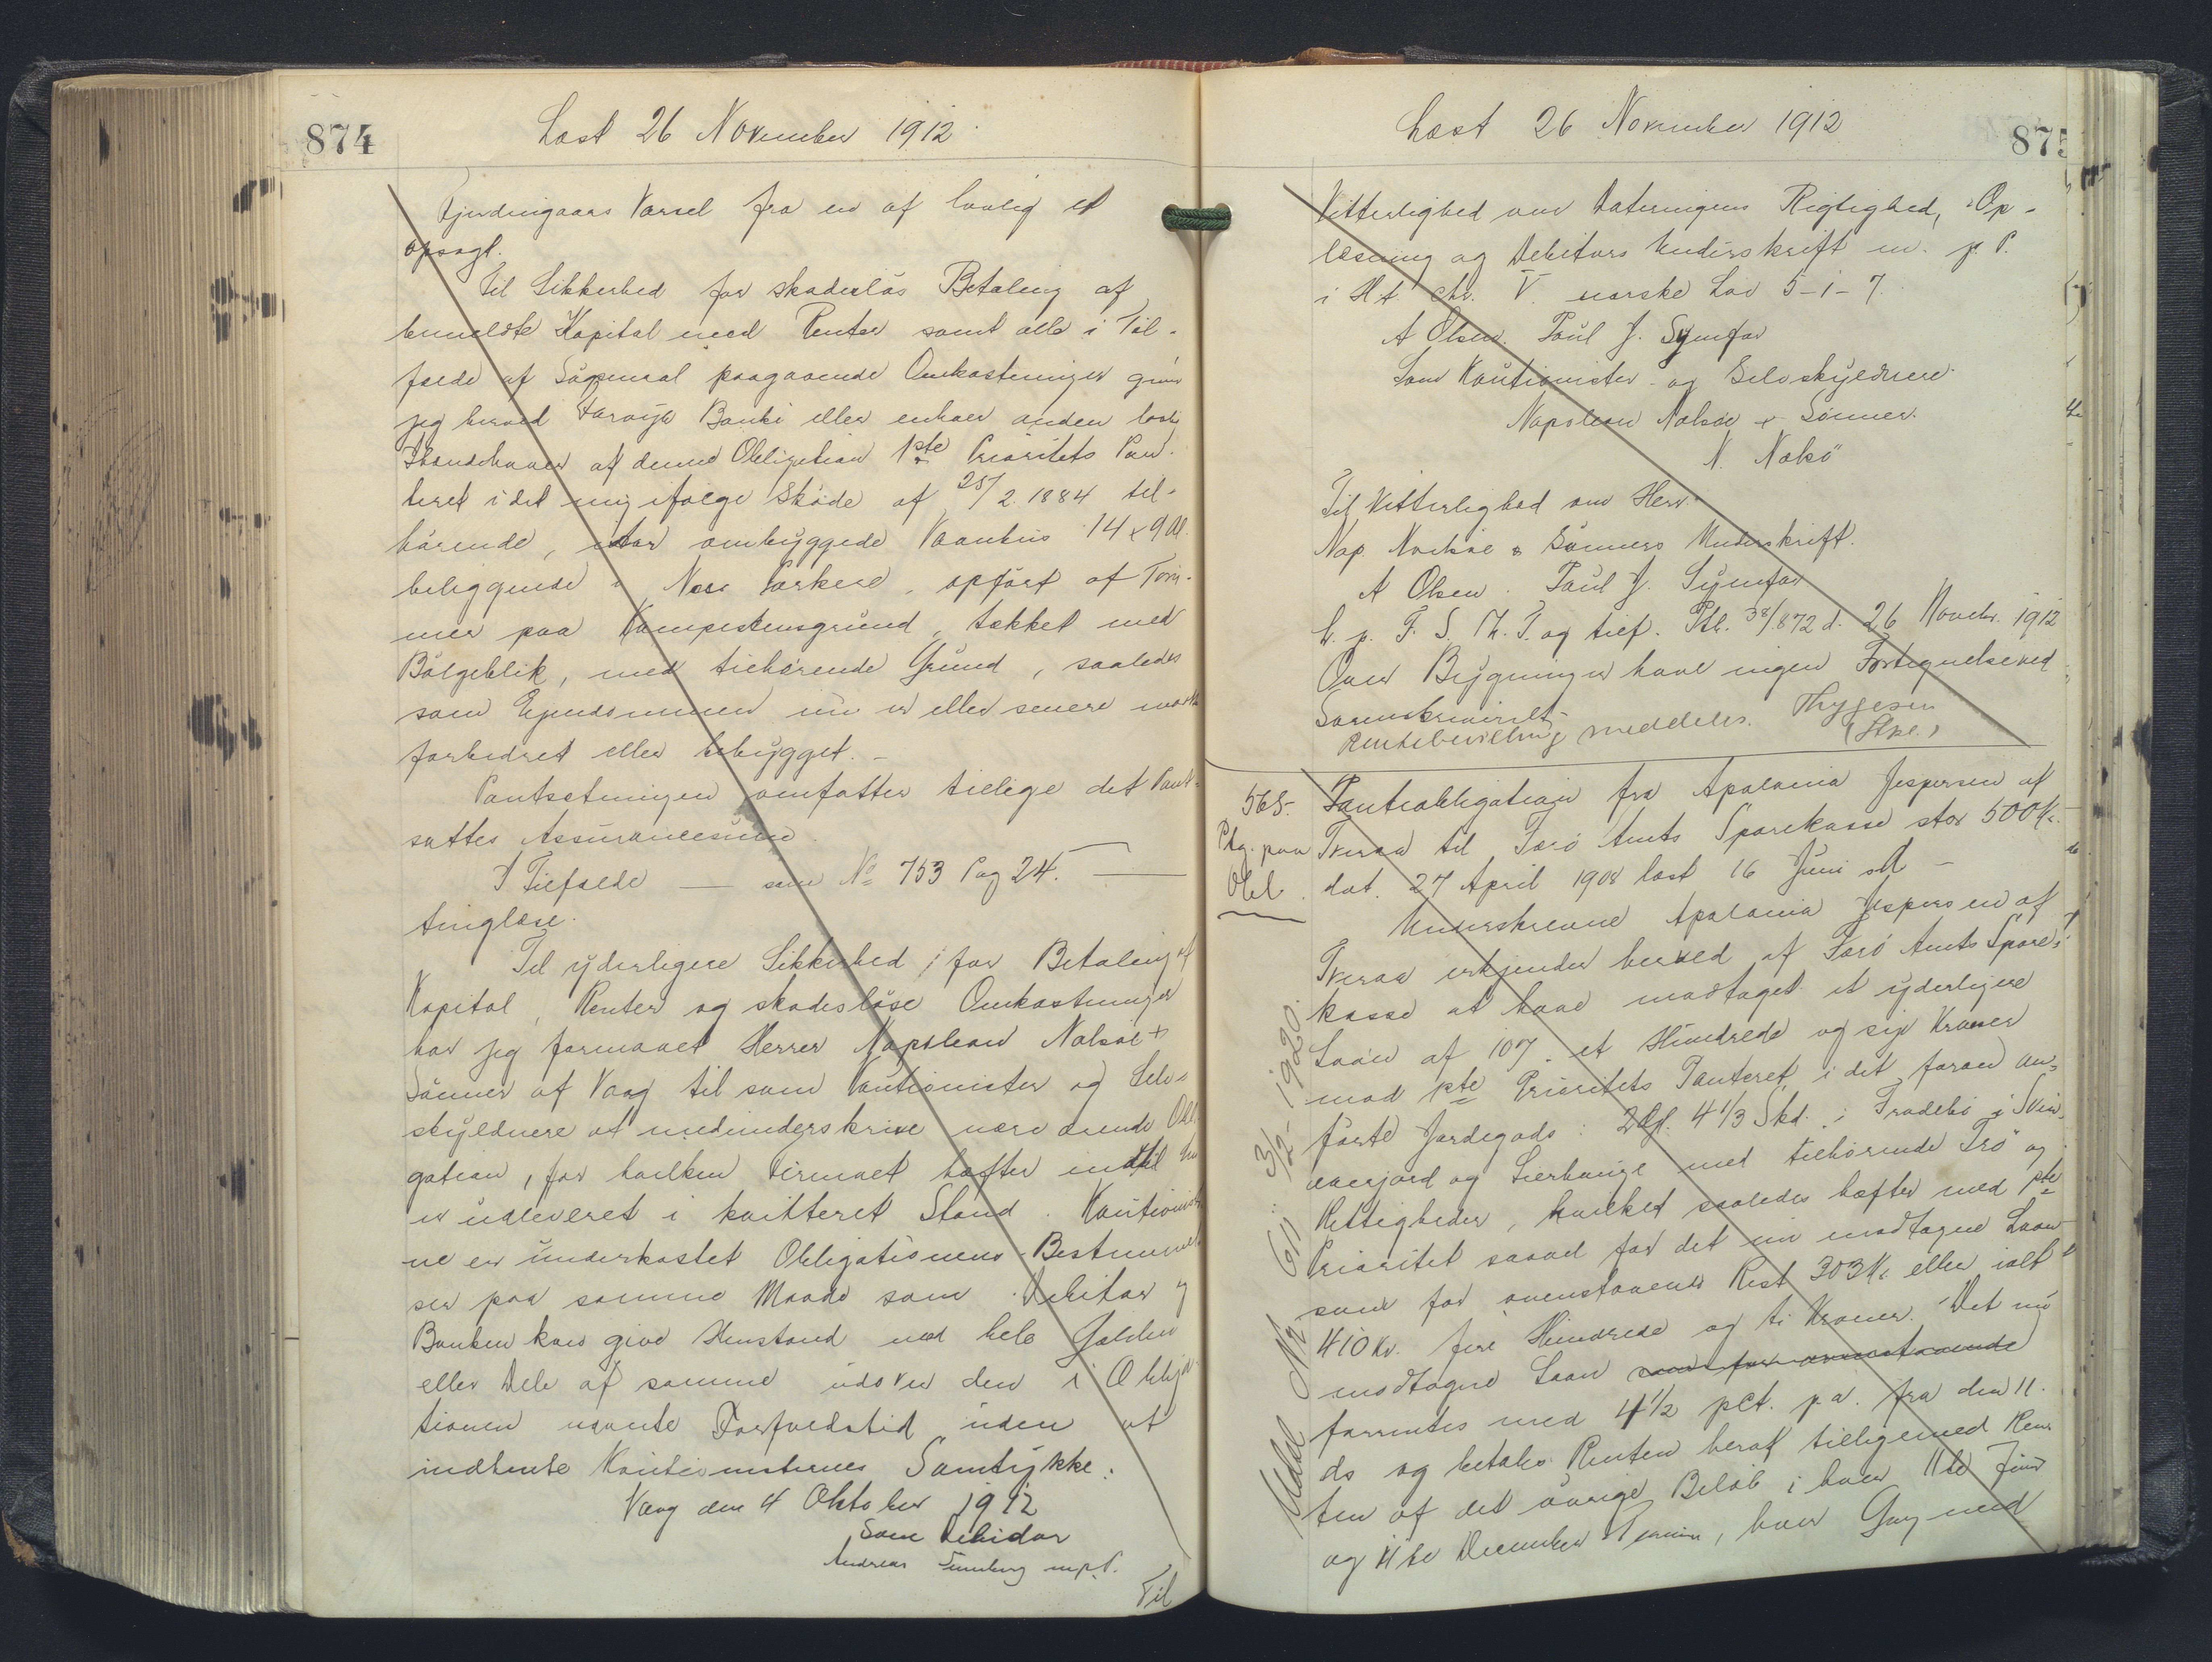 874
Læst 26 November 1912
Fjerdingaars Varsel fra en af lovlig et
opsagt.
Til Sikkerhed for skadesløs Betaling af
bemeldte Kapital med Renter samt alle i Til-
fælde af Søgsmaal paagaaende Omkostninger giver
jeg herved Færøya Banki eller enhver anden lovlig
Ihændehaver af denne Obligation 1ste Prioritets Pan-
teret i det mig ifølge Skøde af 25/2. 1884 til-
hørende, iaar ombyggede Vaanhus 14 x 9 Al.
beliggende i Næs Porkere, opført af Tøm-
mer paa Kampestensgrund, tækket med
Bølgeblik, med tilhørende Grund, saaledes
som Ejendommen nu er eller senere vorder
forbedret eller bebygget. -
Pantsætningen omfatter tillige det Pant-
sattes Assurancesum.
I Tilfælde — som No 753 Pag 24. —
tinglæse.
Til yderligere Sikkerhed for Betaling af
Kapital, Renter og skadesløse Omkostninger
har jeg formaaet Herrer Napoleon Nolsøe &
Sønner af Vaag til som Kautionister og Selv-
skyldnere at medunderskrive nærværende Obli
gation, for hvilken Firmaet hæfter indtil den
er udleveret i kvitteret Stand. Kautionister
ne er underkastet Obligationens Bestemmel
ser paa samme Maade som Debitor og
Banken kan give Henstand med hele Gælden
eller Dele af samme udover den i Obliga
tionen nævnte Forfaldstid uden at
indhente Kautionisternes Samtykke.
Vaag den 4 Oktober 1912
Som Debidor
Andreas mpP.
Til
Læst 26 November 1912
875
Vitterlighed om Dateringens Rigtighed, Op-
læsning og Debitors Underskrift m. p. P.
i H t. Chr. V. norske Lov 5-1-7
A Olsen. Poul J. Symfor
Som Kautionister og Selvskyldnere
Napoleon Nolsøe & Sønner.
N. Nolsø
Til Vitterlighed om Herr
Nap. Nolsøe & Sønners Underskrift.
A Olsen. Poul J. Symfor
L. p. F. S. Th. T. og tilf. Ptb. 38/872 d. 26 Novbr. 1912
Over Bygninger have ingen Fortegnelse ved
Sorenskriveriet.
Rentebevilling meddeles. Thygesen
(Skr.)
565.
Ptg. paa
Obl.
Panteobligation fra Apolonia Jespersen af
Tveraa til Færø Amts Sparekasse stor 500 Kr.
dat. 27 April 1908 læst 16 Juni s A —
Underskrevne Apolonia Jespersen af
Tveraa erkjender herved af Færø Amts Spare-
kasse at have modtaget et yderligere
Laan af 107. et Hundrede og syv Kroner
mod 1ste Prioritets Panteret i det foran an-
førte Jordegods: 2 Gl. 4 1/3 Skd. i Trødebø i Svin-
aaerjord og Lierhauge med tilhørende Trø og
Rettigheder, hvilket saaledes hæfter med 1ste
Prioritet saavel for det nu modtagne Laan
som for ovenstaaende Rest 303 Kr eller ialt
410 Kr. fire Hundrede og ti Kroner. Det nu
modtagne Laan som for ovenstaaende
forrentes med 4 1/2 pct. p. a. fra den 11.
ds og betales Renten heraf tilligemed Ren
ten af det øvrige Beløb i hver 11te Juni
og 11te December Termin, hver Gang med
Udsl No 611 : 3/2 - 1920.